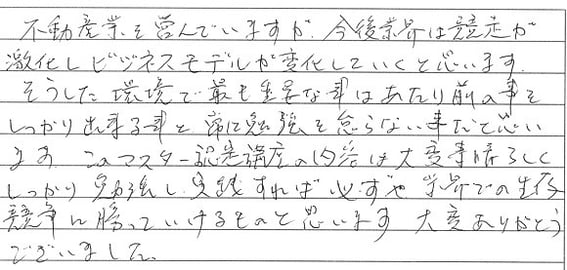 不動産業を営んでいますが、今後業界は競走が
激化しビジネスモデルが変化していくと思います。
そうした環境で最も重要な事はあたり前の事を
しっかり出来る事と常に勉強を怠らない事だと思い
ます。このマスター認定講座の内容は大変素晴らしく
しっかり勉強し実践すれば必ずや業界での生存
競争に勝っていけるものと思います。大変ありがとう
ございました。